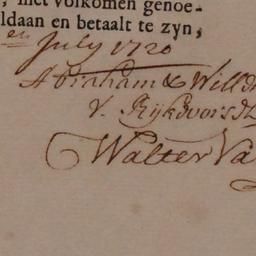 , met volkomen genoe-
ldaan en betaalt te zyn,
en July 1720
Abraham & Will
V. Rijkvorsd
Walter Va